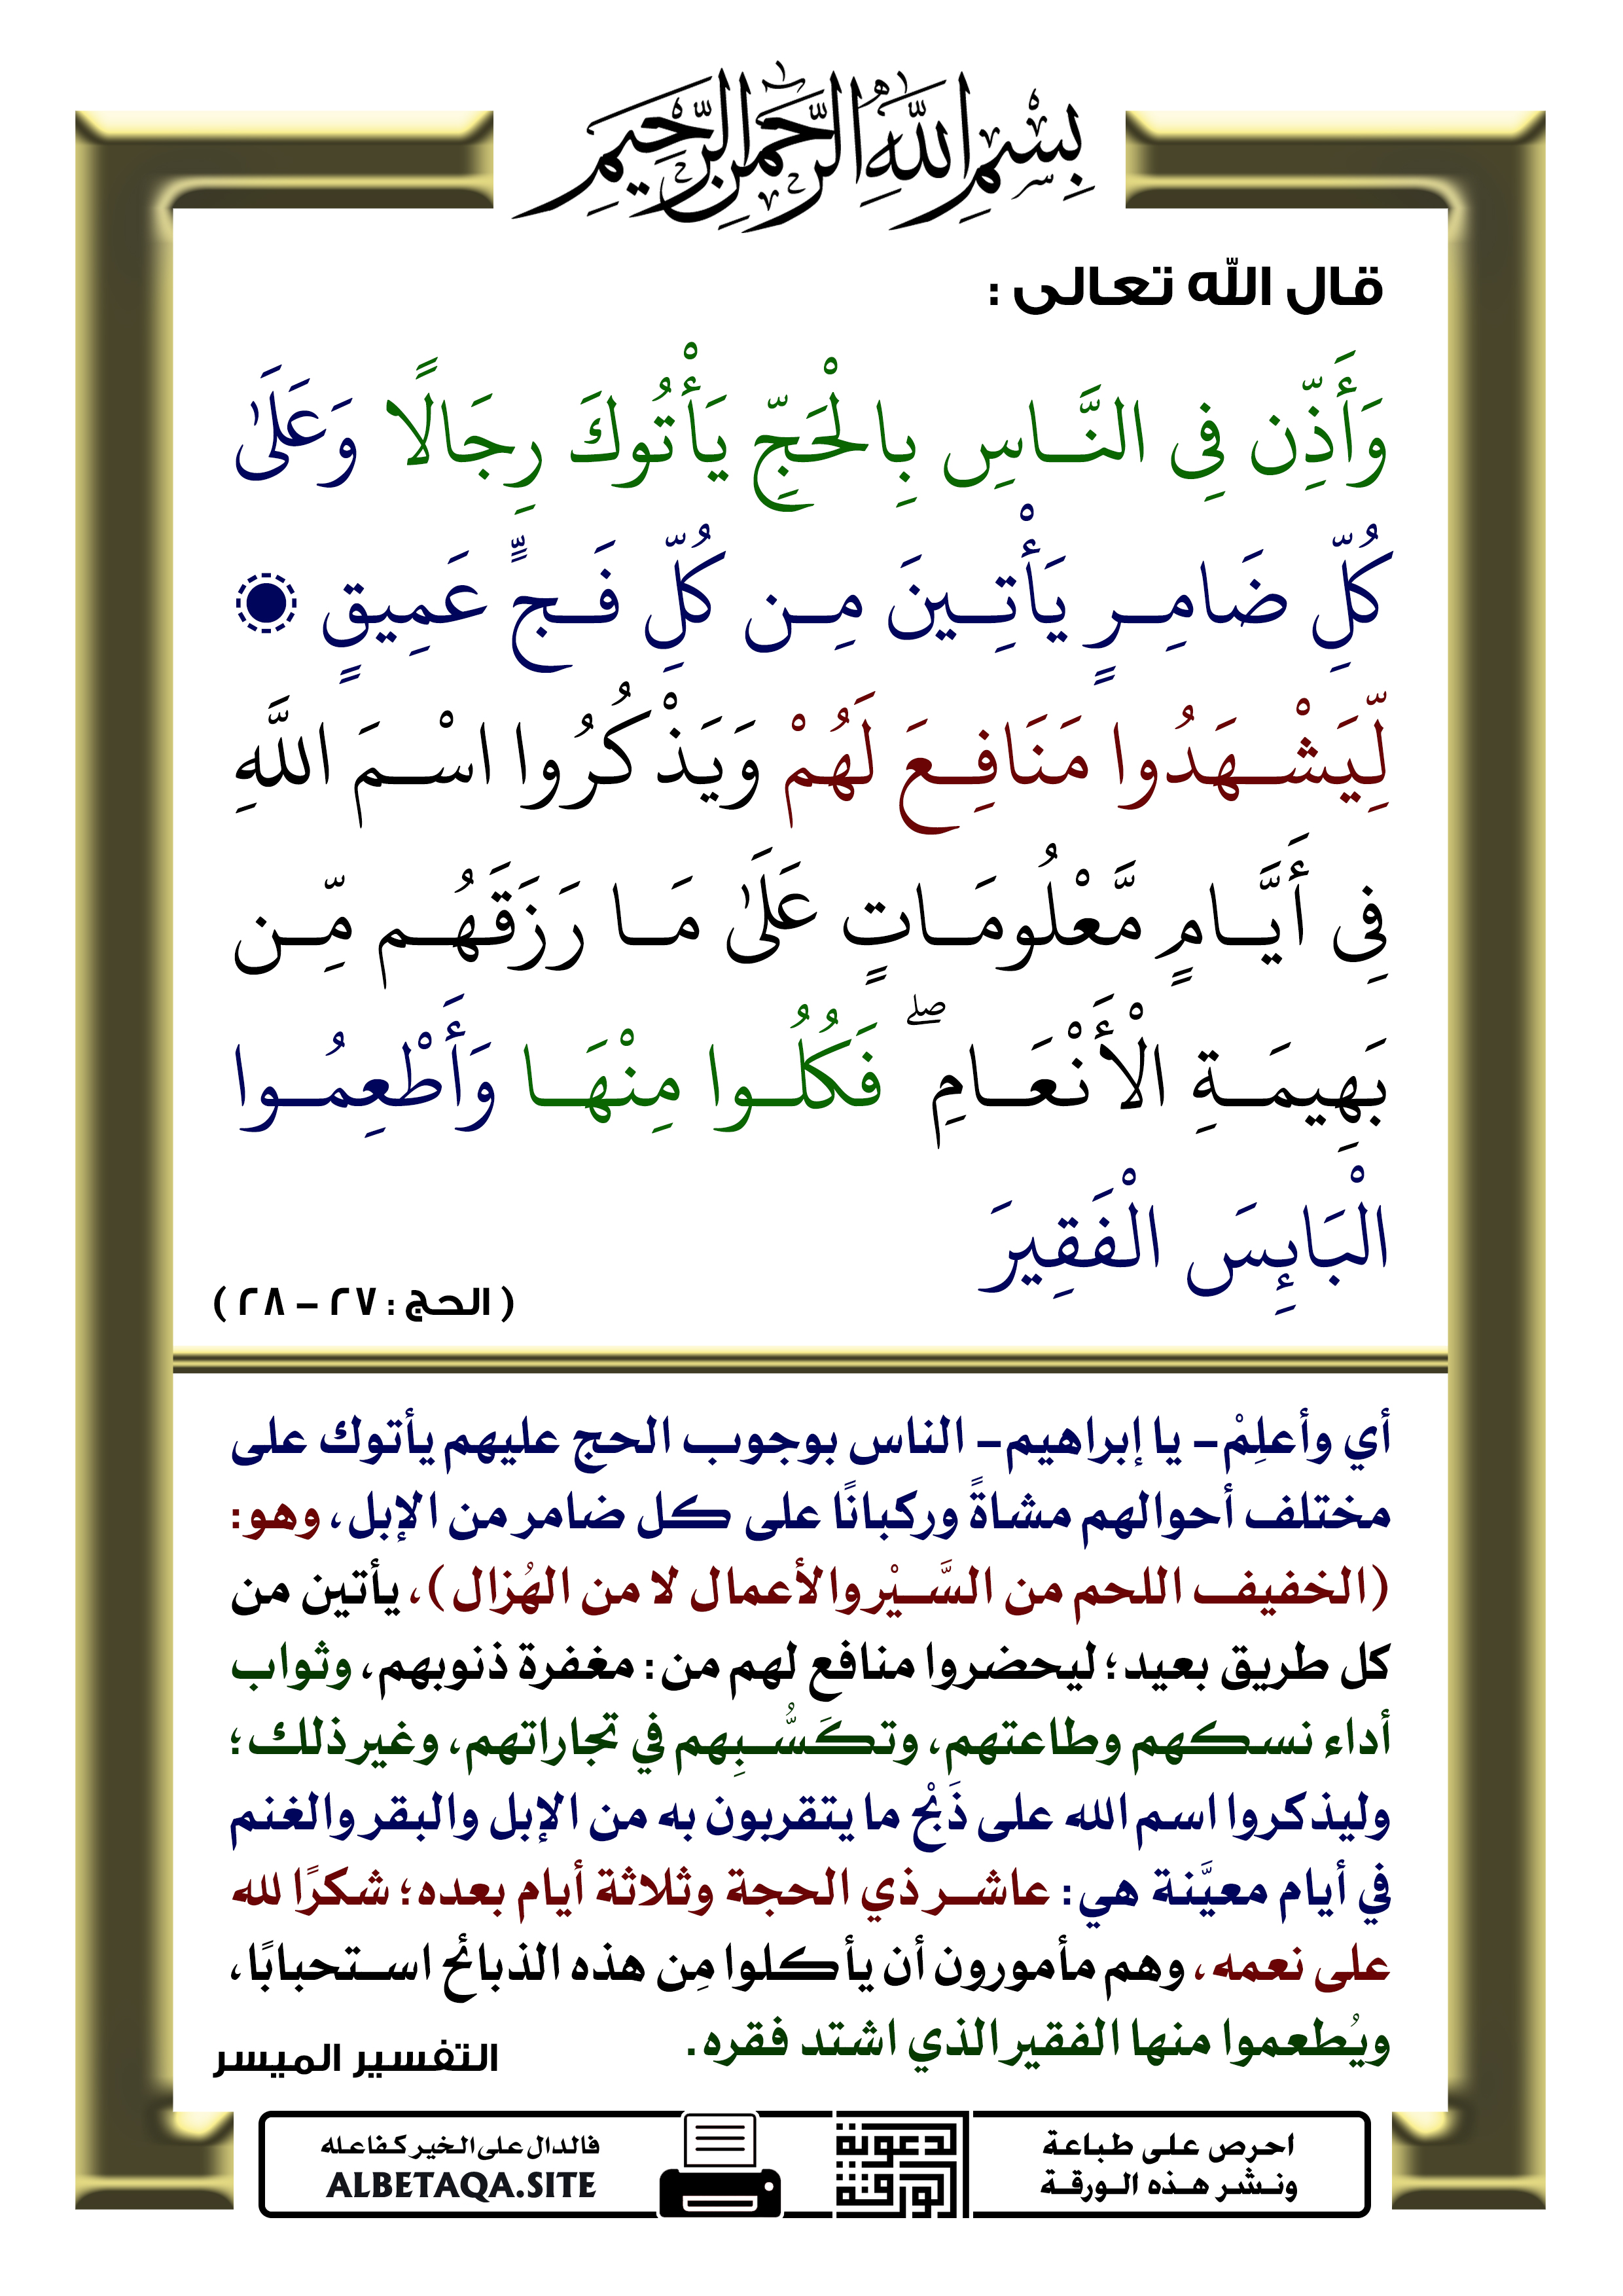 بِسْمِ اللَّهِ الرَّحْمَٰنِ الرَّحِيمِ
قال الله تعالى :
وَأَذِّن فِى النَّاسِ بِالْحَجِّ يَأْتُوكَ رِجَالًا وَعَلَىٰ
كُلِّ ضَامِرٍ يَأْتِينَ مِن كُلِّ فَجٍّ عَمِيقٍ
لِّيَشْهَدُوا مَنَافِعَ لَهُمْ وَيَذْكُرُوا اسْمَ اللَّهِ
فِى أَيَّامٍ مَّعْلُومَاتٍ عَلَىٰ مَا رَزَقَهُم مِّن
بَهِيمَةِ الْأَنْعَامِ ۖ فَكُلُوا مِنْهَا وَأَطْعِمُوا
الْبَائِسَ الْفَقِيرَ
( الحج : ٢٧ – ٢٨ )
أي وأعلِمْ- يا إبراهيم- الناس بوجوب الحج عليهم يأتوك على
مختلف أحوالهم مشاةً وركبانًا على كل ضامر من الإبل، وهو:
(الخفيف اللحم من السَّيْر والأعمال لا من الهُزال)، يأتين من
كل طريق بعيد؛ ليحضروا منافع لهم من: مغفرة ذنوبهم، وثواب
أداء نسكهم وطاعتهم، وتكَسُّبِهم في تجاراتهم، وغير ذلك؛
وليذكروا اسم الله على ذَبْح ما يتقربون به من الإبل والبقر والغنم
في أيام معيَّنة هي: عاشر ذي الحجة وثلاثة أيام بعده؛ شكرًا لله
على نعمه، وهم مأمورون أن يأكلوا مِن هذه الذبائح استحبابًا،
ويُطعموا منها الفقير الذي اشتد فقره.
التفسير الميسر
احرص على طباعة
ونشر هذه الورقة
الدعوية
الورقة
فالدال على الخير كفاعله
ALBETAQA.SITE